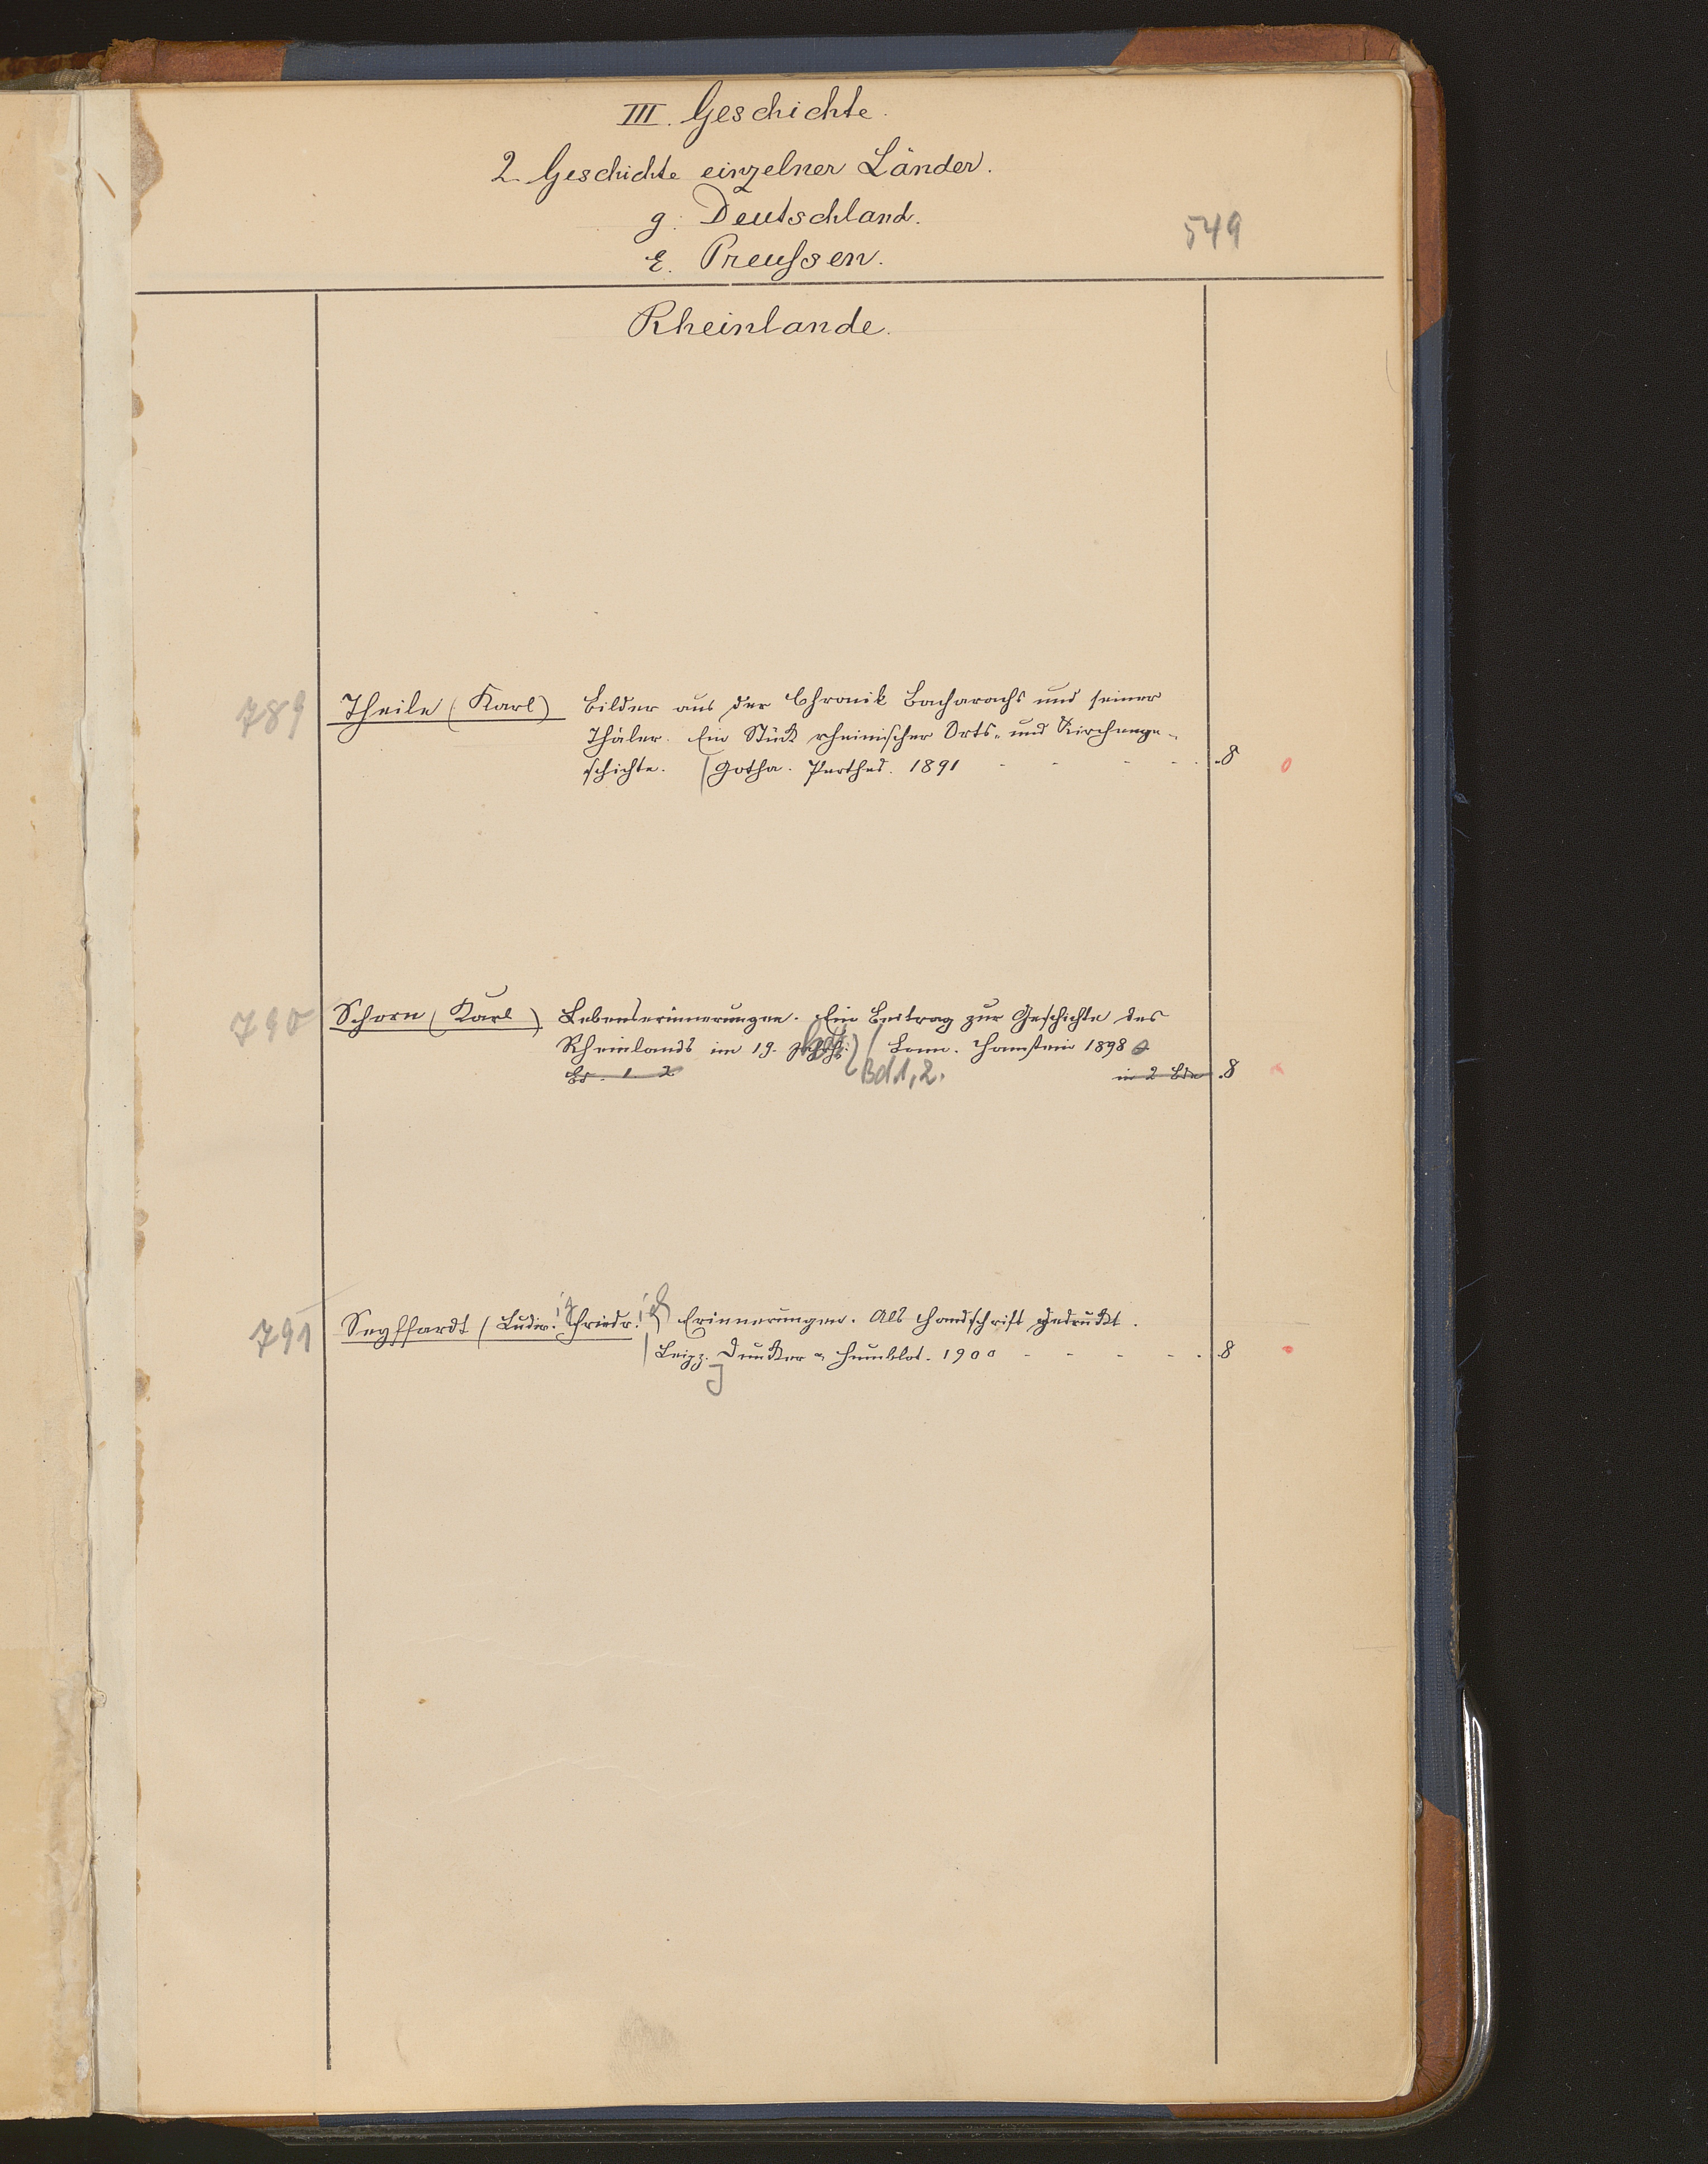 III. Geschichte.
2. Geschichte einzelner Länder.
g. Deutschland.
549
ε. Preußen.
Rheinlande.
789 Theile (Karl) Bilder aus der Chronik Bacharachs und seiner
Thäler. Ein Stück rheinischer Orts- und Kirchenge-
schichte. | Gotha. Perthes. 1891 - - - - - 8 0
790 Schorn (Karl) Lebenserinnerungen. Ein Beitrag zur Geschichte des
Rheinlands im 19. | Bonn. Hanstein 1898
Bd. 1. 2. Bd 1, 2. in 2 Bde 8
791 Seyffardt (Ludw.ig Friedr.ich) Erinnerungen. Als Handschrift gedruckt.
| Leipz. Duncker & Humblot. 1900 - - - - - 8